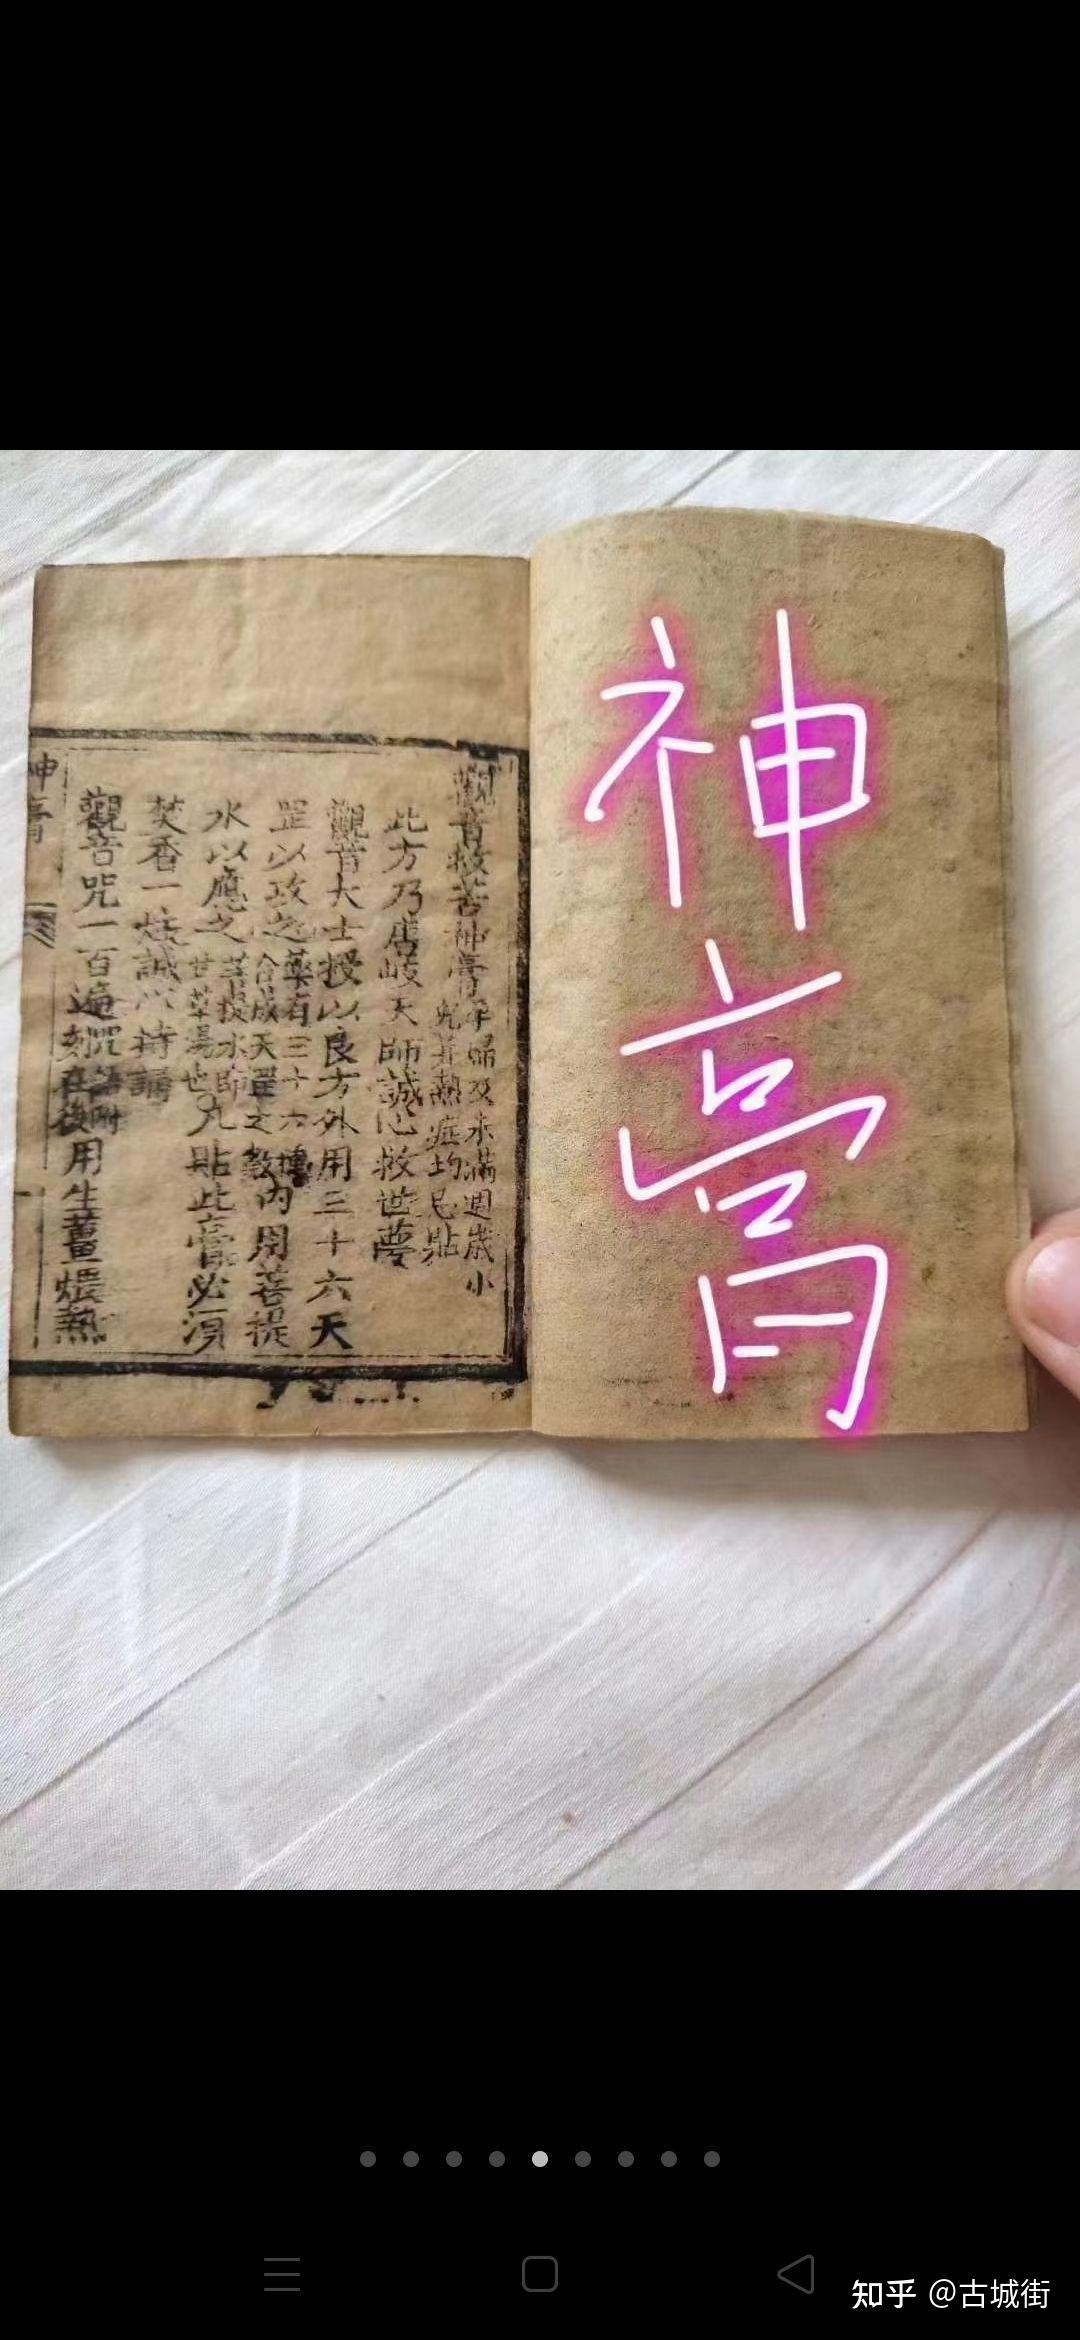 神膏
觀音救苦神膏孕婦及未滿週歲小兒並熱症均忌貼
此方乃唐岐天師誠心救世夢
觀音大士授以良方外用三十六天
罡以攻之藥有三十六種合成天罡之數內用菩提
水以應之甘草湯也九貼此膏必須
焚香一炷誠心持誦
觀音咒一百遍咒語附刻在後用生薑煨熱
神膏
知乎 @古城街